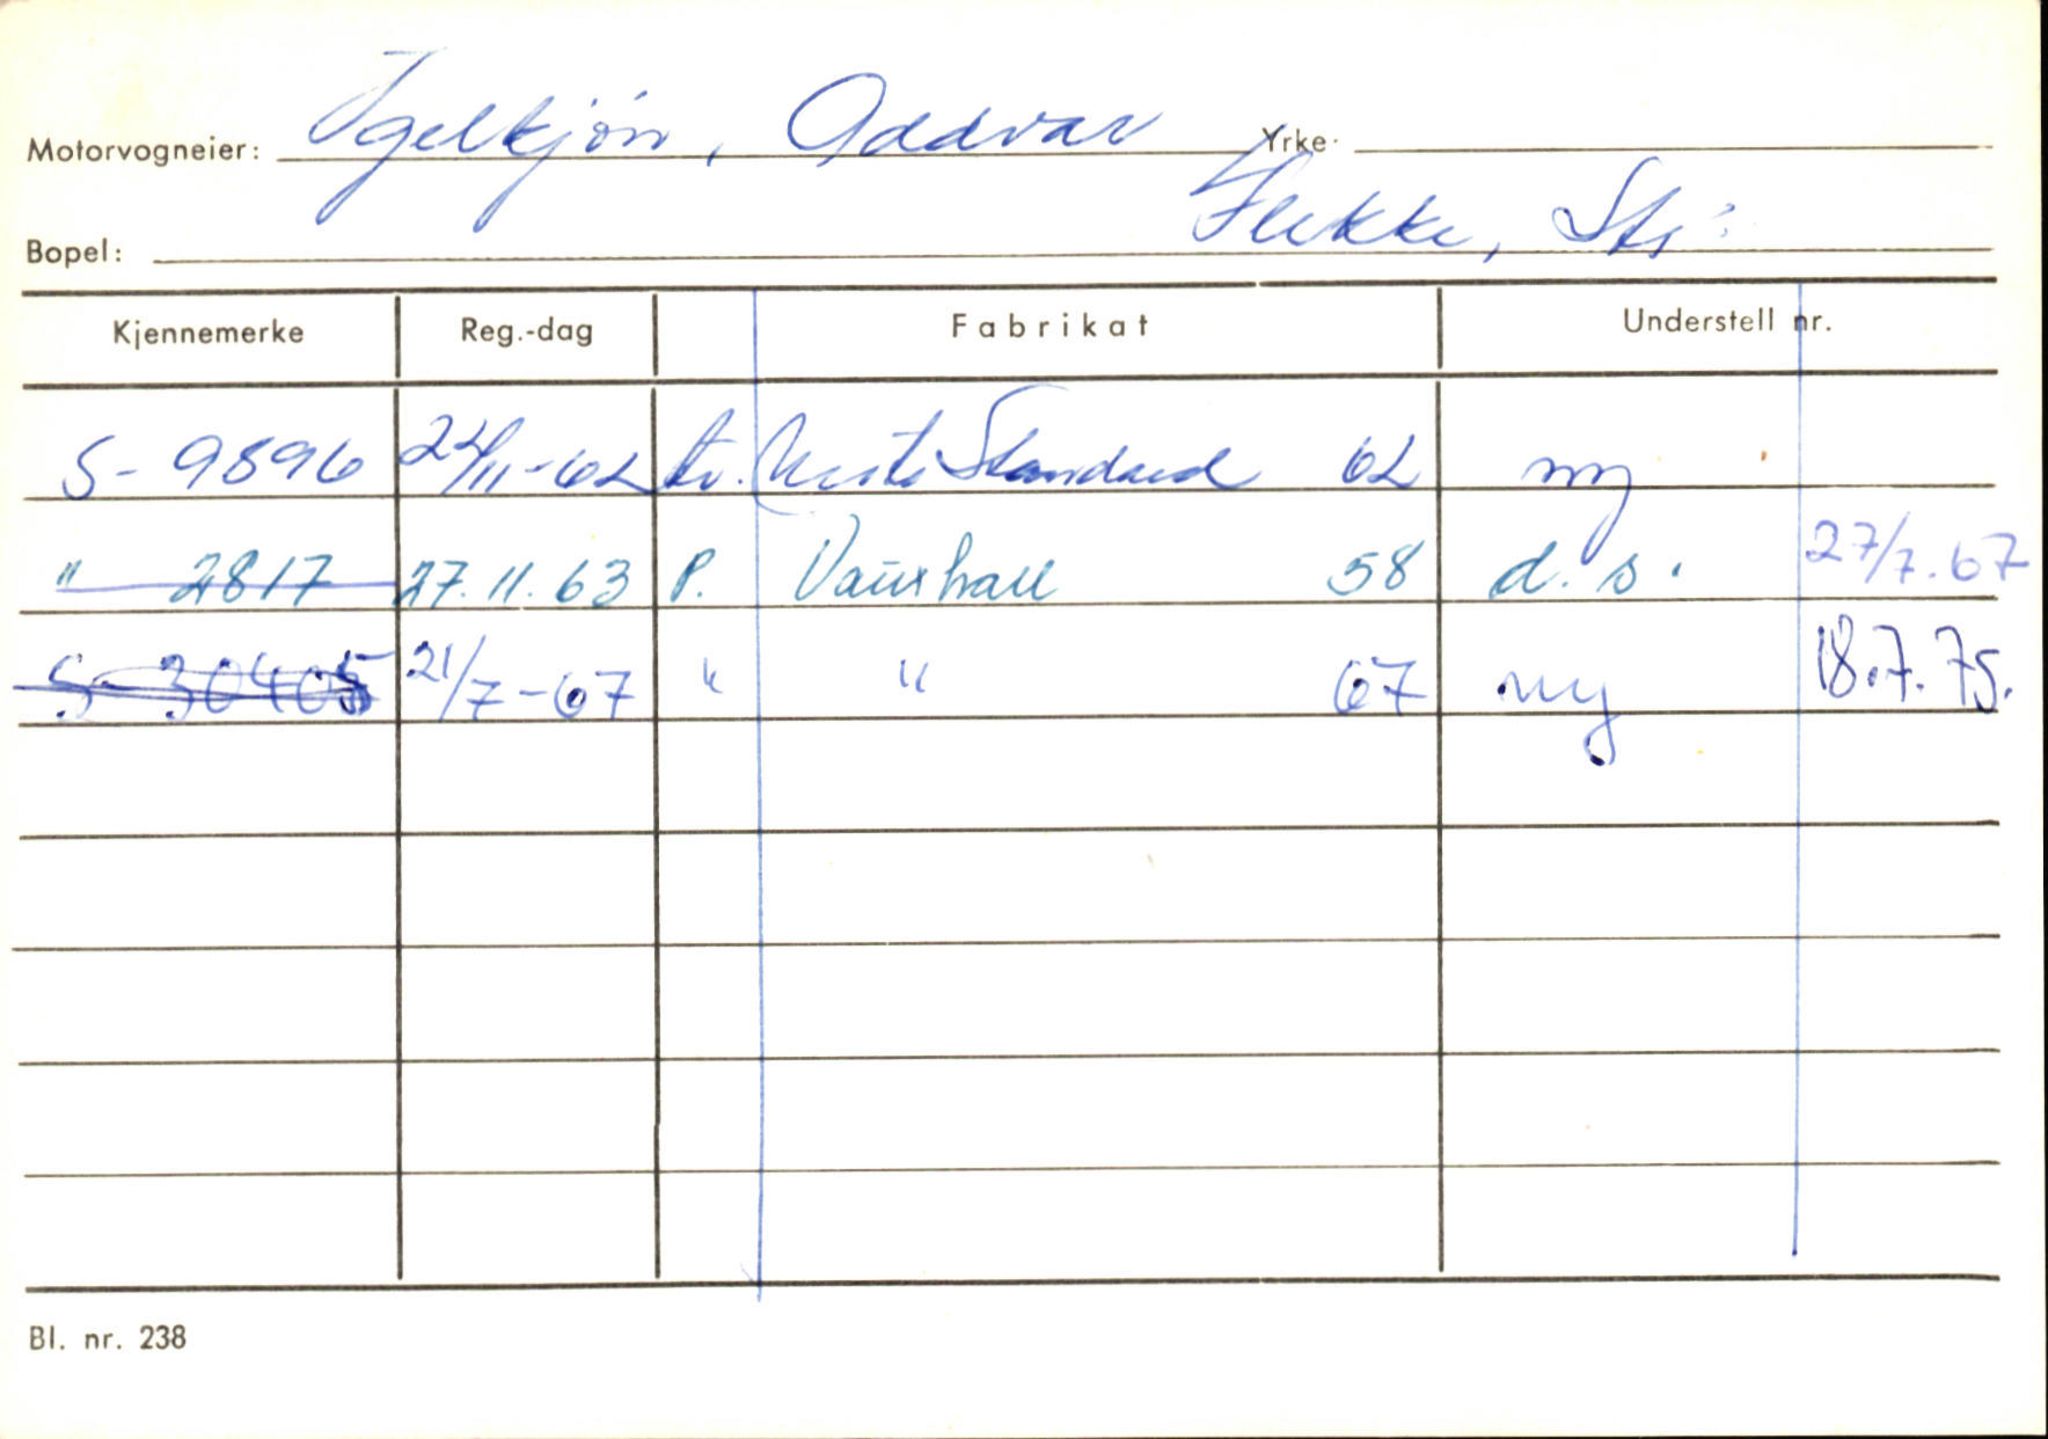 Motorvogneier: Igelkjøn, Oddvar Yrke:
Bopel: Flekke,
Kjennemerke Reg.-dag Fabrikat Understell nr.
S- 9896 /11-62 tr. Standard 62 ny
" 2817 27.11.63 P. Vauxhall 58 d. s. 27/7.67
S- 30405 21/7-67 " " 67 ny 18.7.75.
Bl. nr. 238